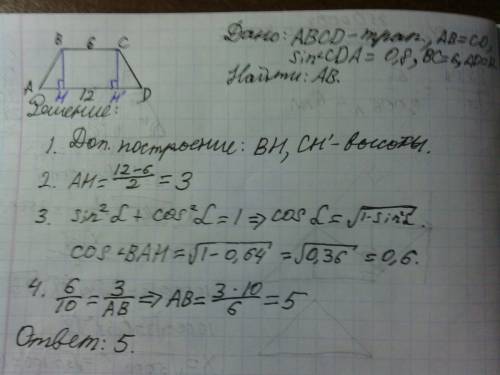 B 6 C
A H 12 H' D
Дано: ABCD - трап., AB=CD,
sin∠CDA = 0,8, BC=6,
Найти: AB.
Решение:
1. Доп. построение: BH, CH' - высоты.
2. AH = \frac{12-6}{2} = 3
3. sin²α + cos²α = 1 ⇒ cos α = √(1-sin²α).
cos∠BAH = √(1-0,64) = √(0,36) = 0,6.
4. \frac{6}{10} = \frac{3}{AB} ⇒ AB = \frac{3·10}{6} = 5
Ответ: 5.